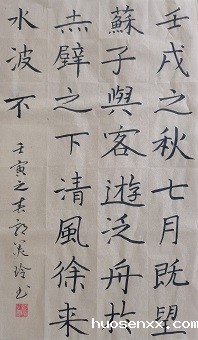 壬戌之秋七月既望
蘇子與客遊泛舟於
赤壁之下清風徐来
水波不
壬寅之春
huosenxx.com